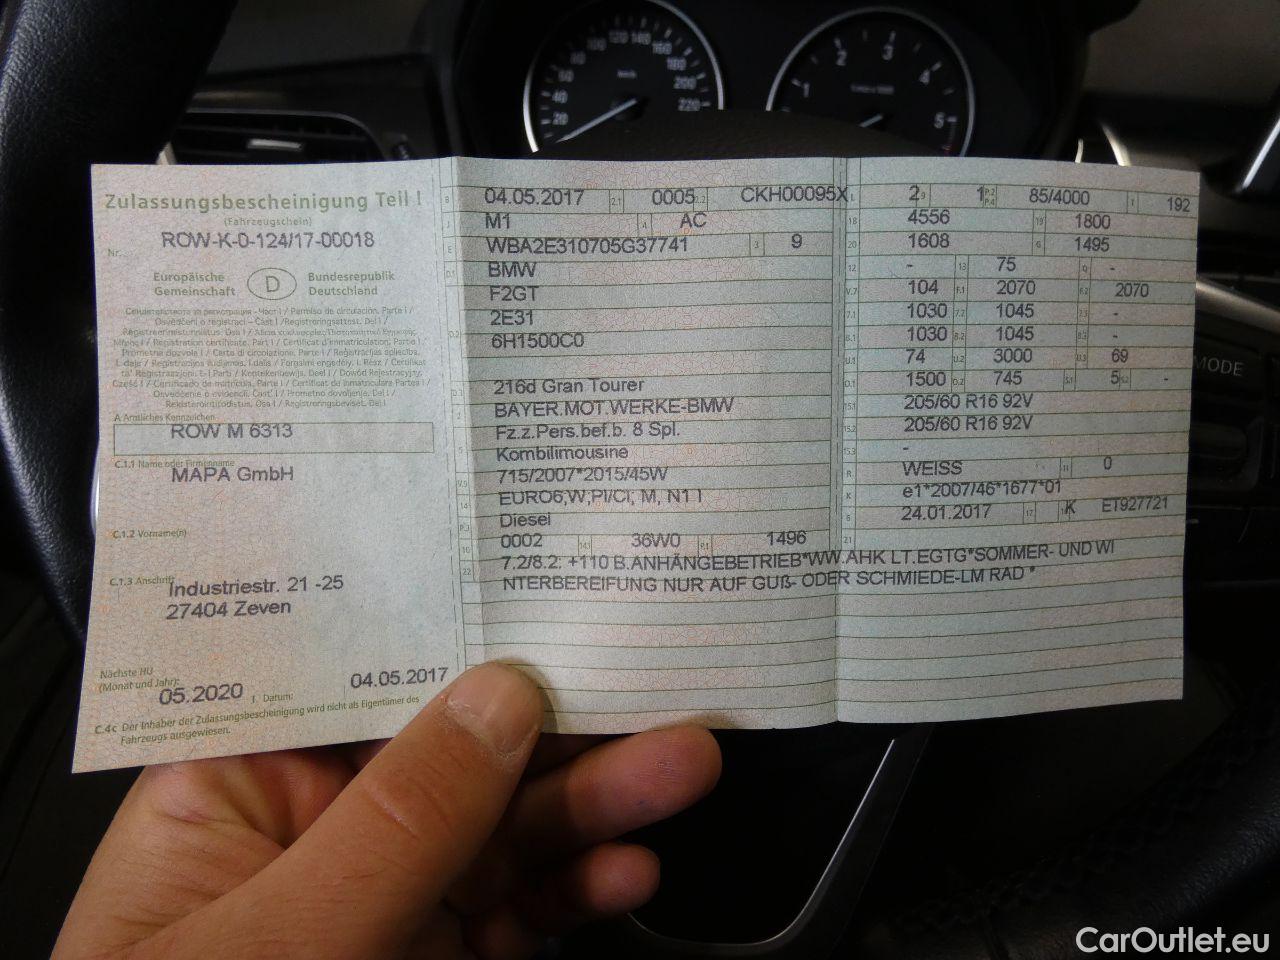 Zulassungsbescheinigung Teil I
(Fahrzeugschein)
Nr. ROW-K-0-124/17-00018
Europäische Gemeinschaft
D
Bundesrepublik Deutschland
A Amtliches Kennzeichen
ROW M 6313
C.1.1 Name oder Firmenname
MAPA GmbH
C.1.2 Vorname(n)
C.1.3 Anschrift
Industriestr. 21 -25
27404 Zeven
Nächste HU
(Monat und Jahr):
05.2020
Datum: 04.05.2017
C.4c Der Inhaber der Zulassungsbescheinigung wird nicht als Eigentümer des
Fahrzeugs ausgewiesen.
B 04.05.2017 2.1 0005 2.2 CKH00095X
J M1 4 AC
E WBA2E310705G37741 3 9
D.1 BMW
F2GT
2E31
D.2 6H1500C0
216d Gran Tourer
BAYER.MOT.WERKE-BMW
Fz.z.Pers.bef.b. 8 Spl.
5 Kombilimousine
V.9 715/2007*2015/45W
14 EURO6,W,PI/CI, M, N1 I
P.3 Diesel
10 0002 14.1 36W0 P.1 1496
22 7.2/8.2: +110 B.ANHÄNGEBETRIEB*WW.AHK LT.EGTG*SOMMER- UND WI
NTERBEREIFUNG NUR AUF GUß- ODER SCHMIEDE-LM RAD *
L 2 9 1 P.2 P.4 85/4000 T 192
18 4556 19 1800
20 1608 G 1495
12 - 13 75 Q -
V.7 104 F.1 2070 F.2 2070
7.1 1030 7.2 1045 7.3 -
8.1 1030 8.2 1045 8.3 -
U.1 74 U.2 3000 U.3 69
O.1 1500 O.2 745 S.1 5 S.2 -
15.1 205/60 R16 92V
15.2 205/60 R16 92V
15.3 -
R WEISS 11 0
K e1*2007/46*1677*01
6 24.01.2017 17 K ET927721
21
20 40 60 80 100 120 140 160 180 200 220
km/h
1 2 3 4 5
MODE
CarOutlet.eu